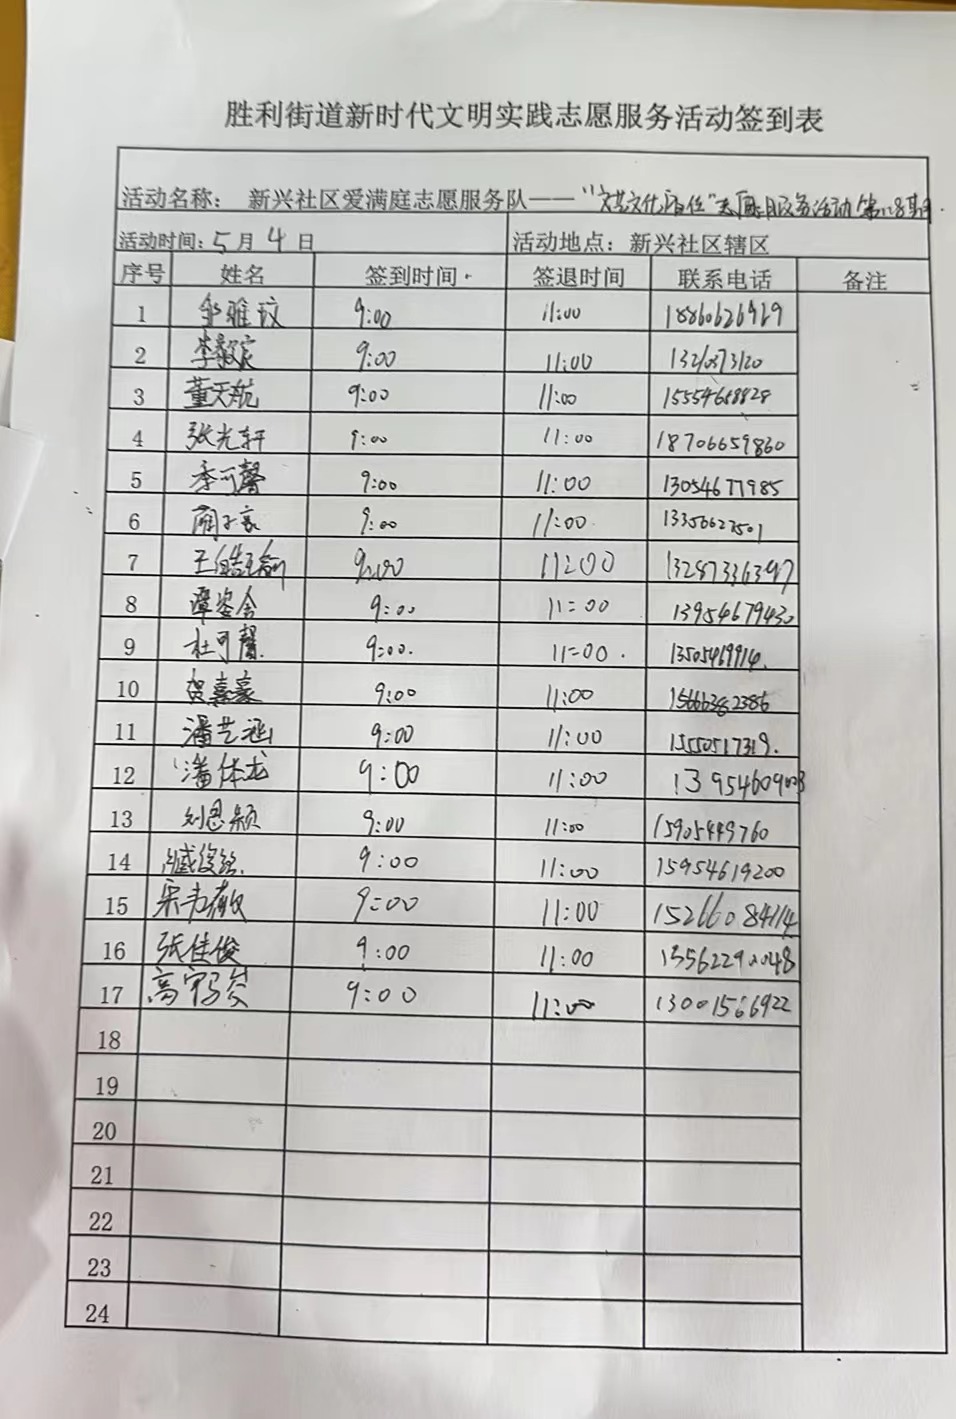 胜利街道新时代文明实践志愿服务活动签到表
活动名称： 新兴社区爱满庭志愿服务队——"文艺文化 服务活动 第 8期
活动时间：5月4日 活动地点：新兴社区辖区
序号 姓名 签到时间 签退时间 联系电话 备注
1 邹雅玟 9:00 11:00 18860626929
2 李毅宸 9:00 11:00 1320373120
3 董天航 9:00 11:00 15554688828
4 张光轩 9:00 11:00 18706659860
5 季可馨 9:00 11:00 13054677985
6 9:00 11:00 13356627501
7 9:00 11:00 13287336397
8 9:00 11:00 13954679430
9 杜可馨. 9:00. 11:00. 13505469914.
10 贺嘉豪 9:00 11:00 15666382386
11 潘艺涵 9:00 11:00 15550517319.
12 潘体龙 9:00 11:00
13 刘恩颖 9:00 11:00 15905449760
14 9:00 11:00 15954619200
15 9:00 11:00 15266084114
16 张佳俊 9:00 11:00 13562292048
17 9:00 11:00 13001566922
18
19
20
21
22
23
24